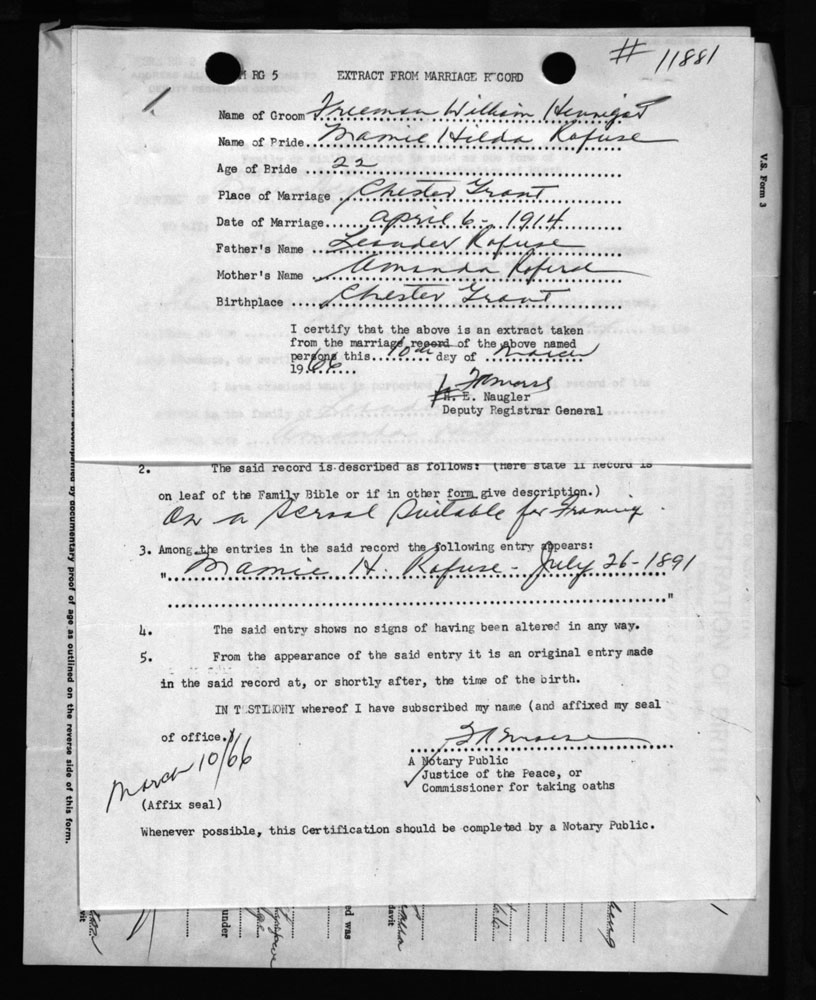 # 11881
M RG 5 EXTRACT FROM MARRIAGE RECORD
Name of Groom Freeman William Hennigar
Name of Bride Mamie Hilda Rafuse
Age of Bride 22
Place of Marriage Chester Grant
Date of Marriage April 6 - 1914
Father's Name Leander Rafuse
Mother's Name Amanda
Birthplace Chester Grant
I certify that the above is an extract taken
from the marriage record of the above named
persons this 10th day of March
1966
H. E. Naugler
Deputy Registrar General
2. The said record is described as follows: (here state if Record is
on leaf of the Family Bible or if in other form give description.)
On a Scroal Suitable for Framing.
3. Among the entries in the said record the following entry appears:
" Mamie H. Rafuse - July 26 - 1891
"
4. The said entry shows no signs of having been altered in any way.
5. From the appearance of the said entry it is an original entry made
in the said record at, or shortly after, the time of the birth.
IN T STIMONY whereof I have subscribed my name (and affixed my seal
of office.)
March 10/66
A Notary Public
✓ Justice of the Peace, or
Commissioner for taking oaths
(Affix seal)
Whenever possible, this Certification should be completed by a Notary Public.
V.S. Form 3
accompanied by documentary proof of age as outlined on the reverse side of this form.
under
ed was
davit